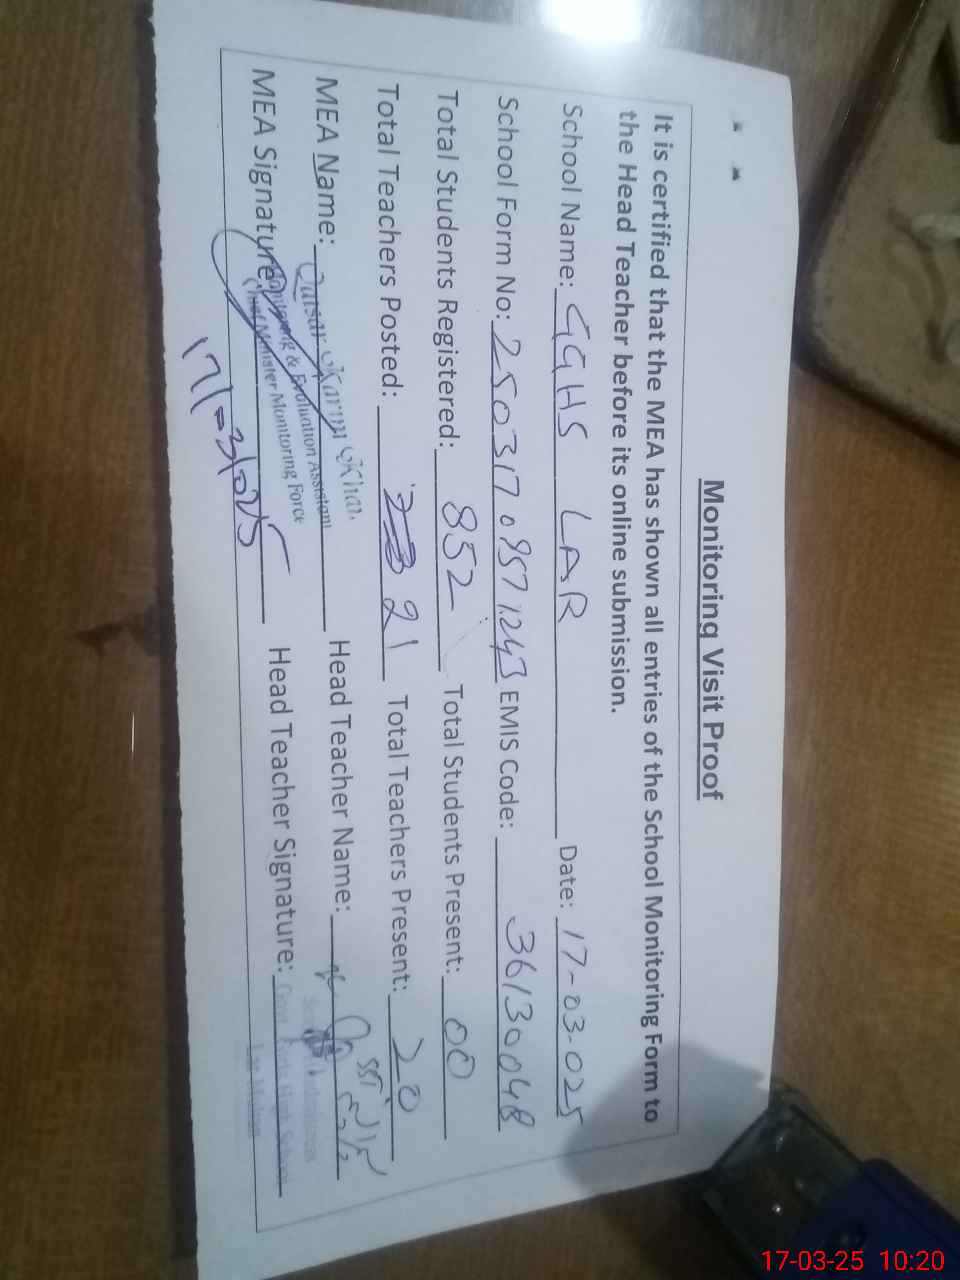 Monitoring Visit Proof
It is certified that the MEA has shown all entries of the School Monitoring Form to
the Head Teacher before its online submission.
School Name: GGHS LAR Date: 17-03-025
School Form No: 25031709571243 EMIS Code: 36130048
Total Students Registered: 852 Total Students Present: 00
Total Teachers Posted: 21 Total Teachers Present: 20
MEA Name: Qaisar Karim Khan Head Teacher Name:
Monitoring & Evaluation Assistant
Chief Minister Monitoring Force
MEA Signature: Head Teacher Signature:
Govt. Girls High School
Lar Multan
17/3/025
17-03-25 10:20